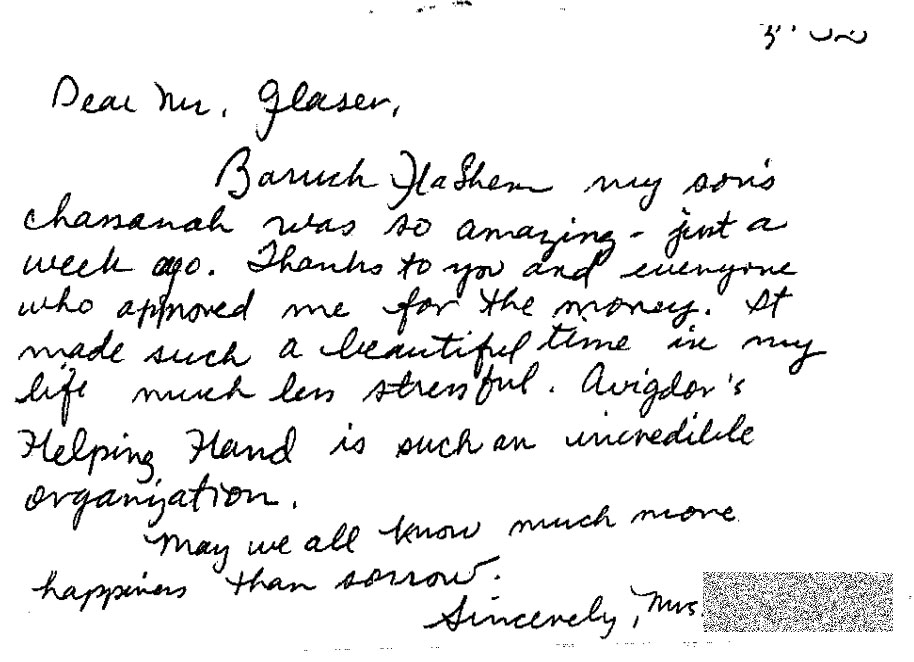 Dear Mr. Glaser,
Baruch HaShem my son's
chassanah was so amazing - just a
week ago. Thanks to you and everyone
who approved me for the money. It
made such a beautiful time in my
life much less stressful. Avigdor's
Helping Hand is such an incredible
organization.
May we all know much more
happiness than sorrow.
Sincerely, Mrs.